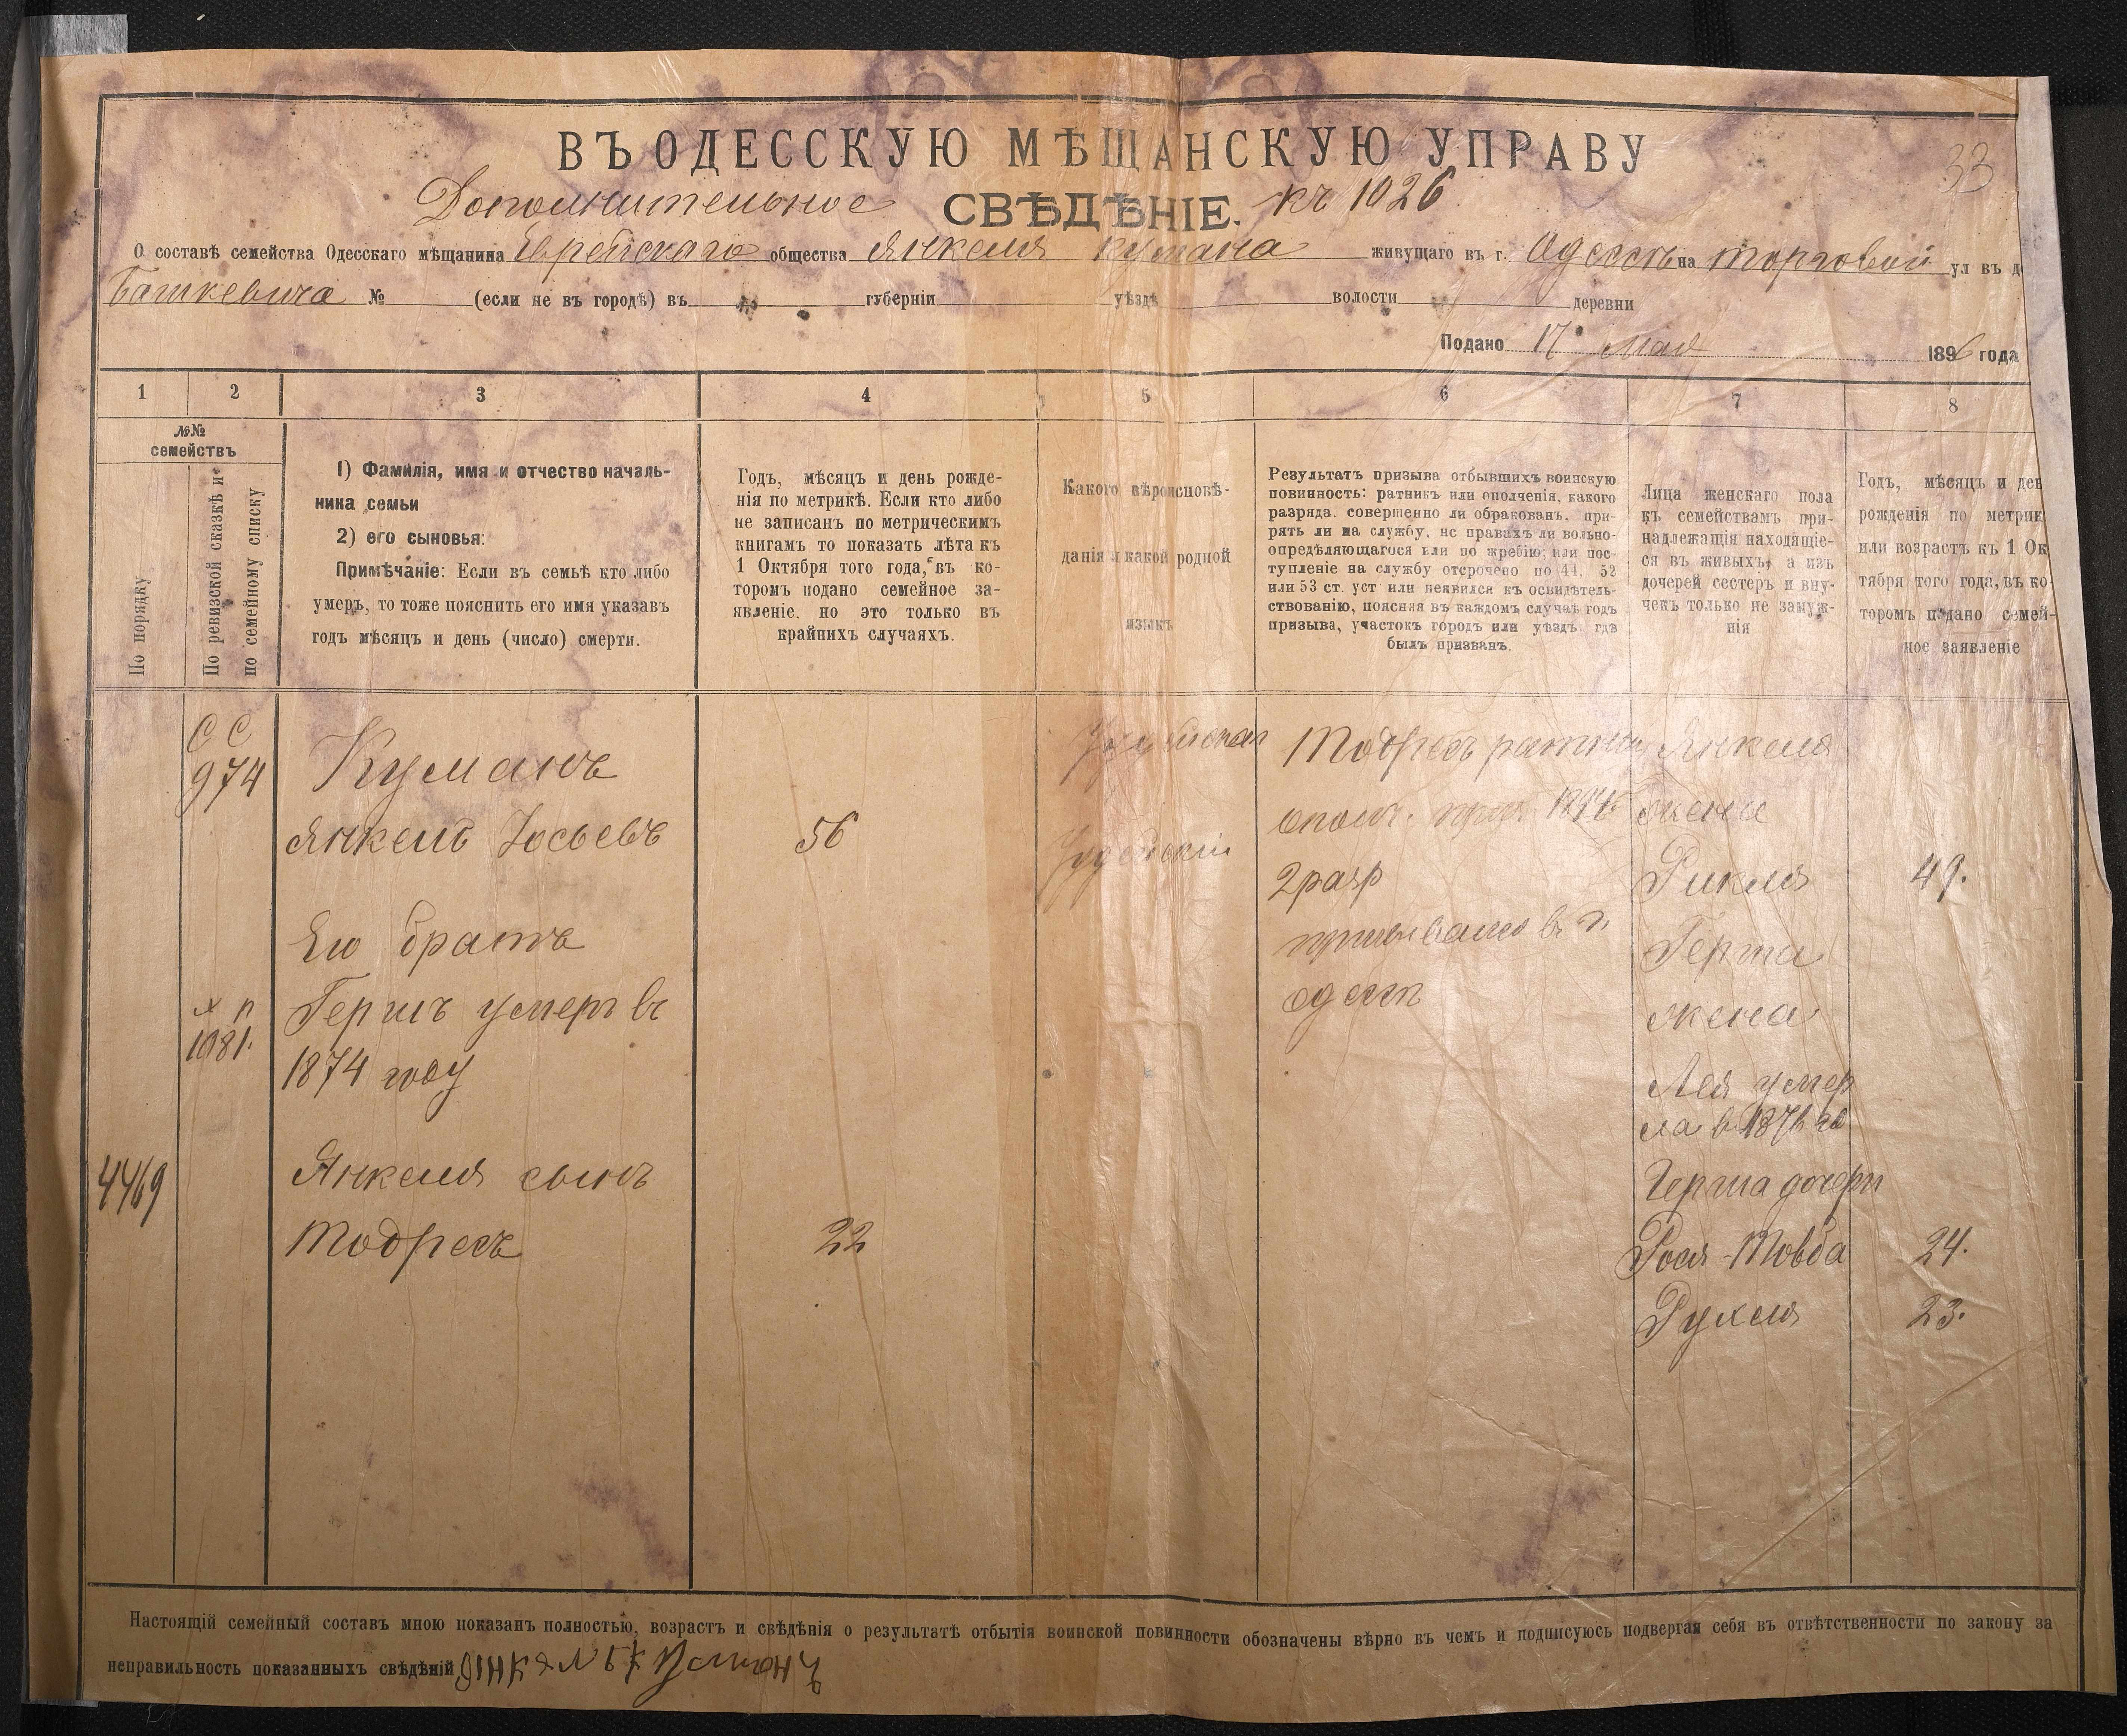 33
ВЪ ОДЕССКУЮ МѢЩАНСКУЮ УПРАВУ
Дополнительное СВѢДѢНІЕ. къ 1026
О составѣ семейства Одесскаго мѣщанина Еврейскаго общества Янкеля Кумана живущаго въ г. Одессѣ на Торговой ул въ д
Башкевича № (если не въ городѣ) въ губерніи уѣздѣ волости деревни
Подано 17 мая 1896 года
1 2 3 4 5 6 7 8
№№
семействъ
По порядку
По ревизской сказкѣ и
по семейному списку
1) Фамилія, имя и отчество началь-
ника семьи
2) его сыновья:
Примѣчаніе: Если въ семьѣ кто либо
умеръ, то тоже пояснить его имя указавъ
годъ мѣсяцъ и день (число) смерти.
Годъ, мѣсяцъ и день рожде-
нія по метрикѣ. Если кто либо
не записанъ по метрическимъ
книгамъ то показать лѣта къ
1 Октября того года, въ ко-
торомъ подано семейное за-
явленіе. но это только въ
крайнихъ случаяхъ.
Какого вѣроисповѣ-
данія и какой родной
языкъ
Результатъ призыва отбывшихъ воинскую
повинность: ратникъ или ополченія, какого
разряда. совершенно ли обракованъ. при-
рятъ ли на службу, нс правахъ ли вольно-
опредѣляющагося или по жребію; или пос-
тупленіе на службу отсрочено по 44, 52
или 53 ст. уст или неявился къ освидѣтель-
ствованію, поясняя въ каждомъ случаѣ годъ
призыва, участокъ городъ или уѣздъ гдѣ
былъ призванъ.
Лица женскаго пола
къ семействамъ при-
надлежащія находящіе-
ся въ живыхъ, а изъ
дочерей сестеръ и вну-
чекъ только не замуж-
нія
Годъ, мѣсяцъ и ден
рожденія по метрик
или возрастъ къ 1 Ок
тября того года, въ ко-
торомъ подано семей-
ное заявленіе
СС
974
Куманъ
Янкель Іосьевъ
56
Его братъ
Гершъ умеръ въ
1081.
1874 году
4469
Янкеля сынъ
Тодресъ
22
Іудейская
Іудейскій
Тодресъ ратник
ополч.
2 разр
въ г.
Одессѣ
Янкеля
жена
Рикля
49.
Герша
жена
Лея умер
ла в 1876 го
Герша дочери
Рося-Товба
24.
Рухля
23.
Настоящій семейный составъ мною показанъ полностью, возрастъ и свѣдѣнія о результатѣ отбытія воинской повинности обозначены вѣрно въ чемъ и подписуюсь подвергая себя въ отвѣтственности по закону за
неправильность показанныхъ свѣдѣній